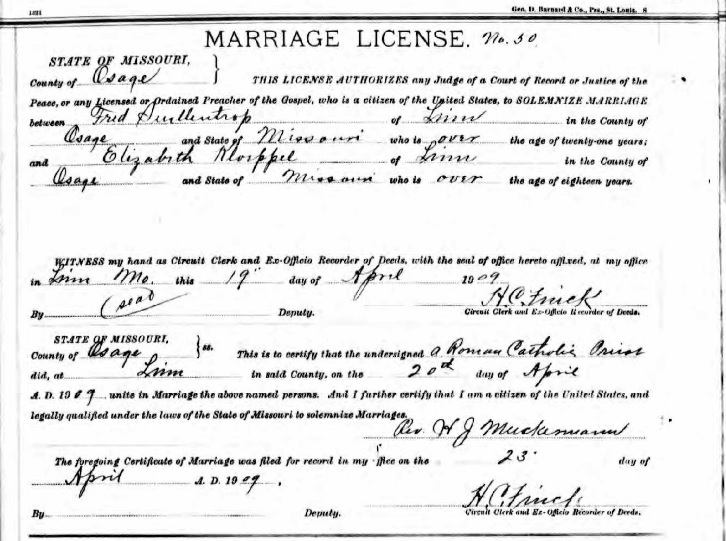 1821 Geo. D. Barnard & Co., Prs., St. Louis. S
MARRIAGE LICENSE. No. 50
STATE OF MISSOURI, }
County of Osage THIS LICENSE AUTHORIZES any Judge of a Court of Record or Justice of the
Peace, or any Licensed or Ordained Preacher of the Gospel, who is a citizen of the United States, to SOLEMNIZE MARRIAGE
between Fred of Linn in the County of
Osage and State of Missouri who is over the age of twenty-one years;
and Elizabeth Kloeppel of Linn in the County of
Osage and State of Missouri who is over the age of eighteen years.
WITNESS my hand as Circuit Clerk and Ex-Officio Recorder of Deeds, with the seal of office hereto affixed, at my office
in Linn Mo. this 19" day of April 1909
(seal) H.C. Finck
By Deputy. Circuit Clerk and Ex-Officio Recorder of Deeds.
STATE OF MISSOURI, } ss.
County of Osage This is to certify that the undersigned a Roman Catholic Priest
did, at Linn in said County, on the 20th day of April
A. D. 1909 unite in Marriage the above named persons. And I further certify that I am a citizen of the United States, and
legally qualified under the laws of the State of Missouri to solemnize Marriages.
Rev. H J Muckermann
The foregoing Certificate of Marriage was filed for record in my office on the 23 day of
April A. D. 1909.
H.C. Finck
By Deputy. Circuit Clerk and Ex-Officio Recorder of Deeds.